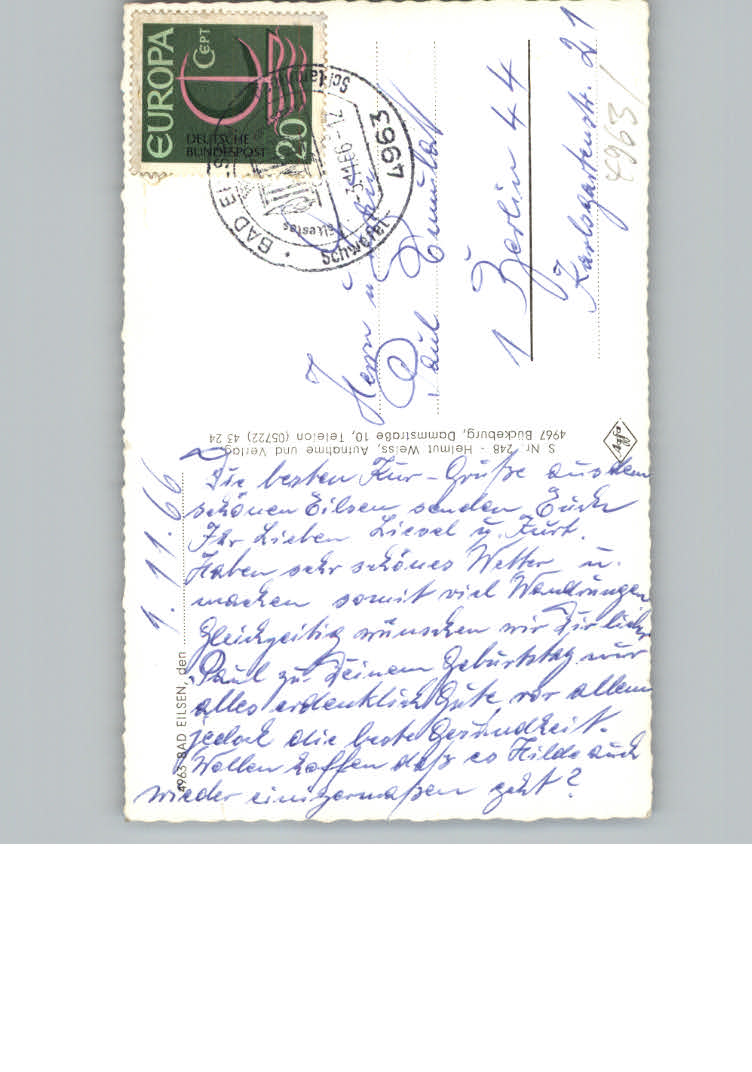 EUROPA
CEPT
DEUTSCHE
BUNDESPOST
20
4963
BAD
Schwefel
-3.11.66-
4963
Herrn u.
Paul
1 Berlin 44
Karlsgartenstr. 21
Agfa
S Nr. 248 - Helmut Weiss, Aufnahme und Verlag
4967 Bückeburg, Dammstraße 10, Telefon (05722) 43 24
4963 BAD EILSEN, den 1.11.66
Die besten Kur-Grüße aus dem
schönen Eilsen senden Euch
Ihr Lieben Liesel u. Kurt.
Haben sehr schönes Wetter u.
machen somit viel Wandrungen
Gleichzeitig wünschen wir Dir lieber
Paul zu Deinem Geburtstag nur
alles erdenklich Gute, vor allem
jedoch die beste Gesundheit.
Wollen hoffen daß es Hilde auch
wieder einigermaßen geht?